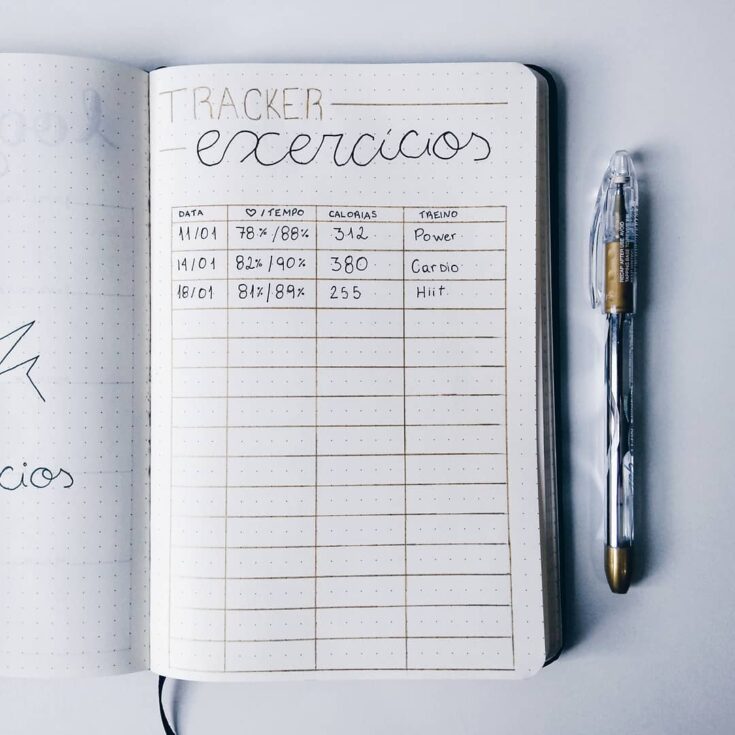 TRACKER
exercícios
DATA ♡/TEMPO CALORIAS TREINO
11/01 78%/88% 312 Power
14/01 82%/90% 380 Cardio
18/01 81%/89% 255 Hiit
cios